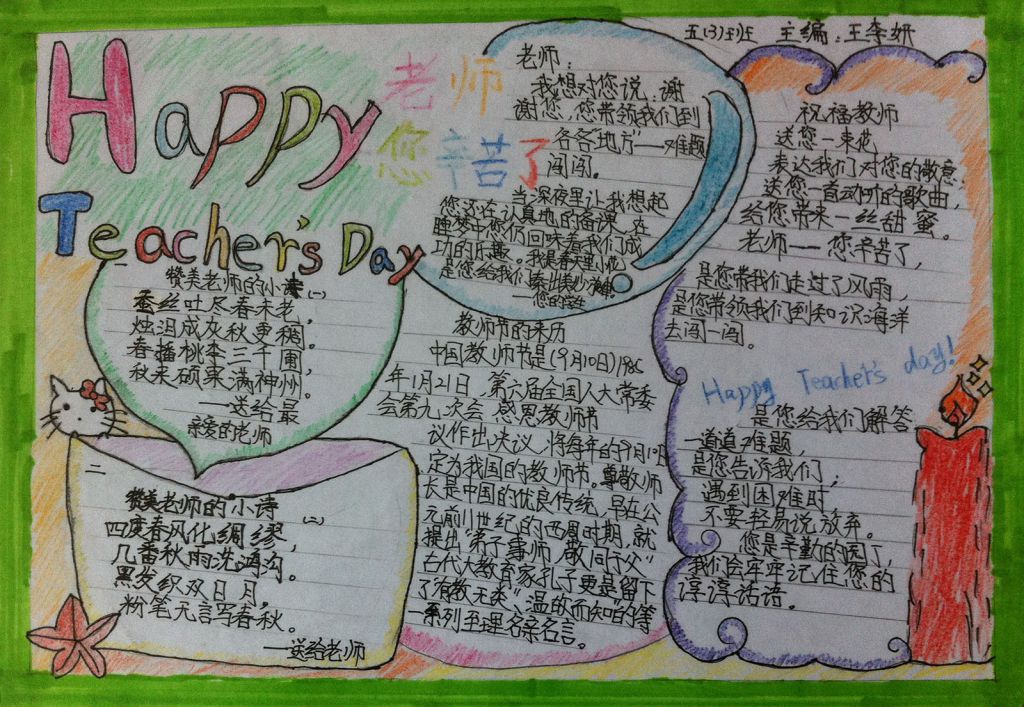 Happy
Teacher's Day
老师
您辛苦了
五(3)班 主编:王李妍
老师:
我想对您说:谢
谢您,您带领我们到
各各"地方"——难题
闯闯。
当深夜里让我想起
您还在认真地的备课,在
睡梦中您仍回味着我们成
功的乐趣。我是春天里小花,
是您给我们
——您的学生
赞美老师的小诗(一)
蚕丝吐尽春未老,
烛泪成灰秋更稠。
春播桃李三千圃,
秋来硕果满神州。
——送给最
亲爱的老师
二
赞美老师的小诗(二)
四度春风化绸缪,
几番秋雨洗鸿沟。
黑发织双日月,
粉笔无言写春秋。
——送给老师
教师节的来历
中国教师节是(9月10日)198
年1月21日,第六届全国人大常委
会第九次会,感恩教师节
议作出决议,将每年的9月10日
定为我国的教师节。尊敬师
长是中国的优良传统,早在公
元前11世纪的西周时期,就
提出"弟子事师,敬同于父"
古代大教育家孔子更是留下
了"有教无类"、温故而知的等
一系列至理名亲名言。
祝福教师
送您一束花
表达我们对您的敬意;
送您一首动听的歌曲,
给您带来一丝甜蜜。
老师——您辛苦了,
是您带我们走过了风雨,
是您带领我们到知识海洋
去闯一闯。
Happy Teacher's day!
是您给我们解答
一道道难题,
是您告诉我们,
遇到困难时,
不要轻易说放弃。
您是辛勤的园丁,
我们会牢牢记住您的
谆谆话语。